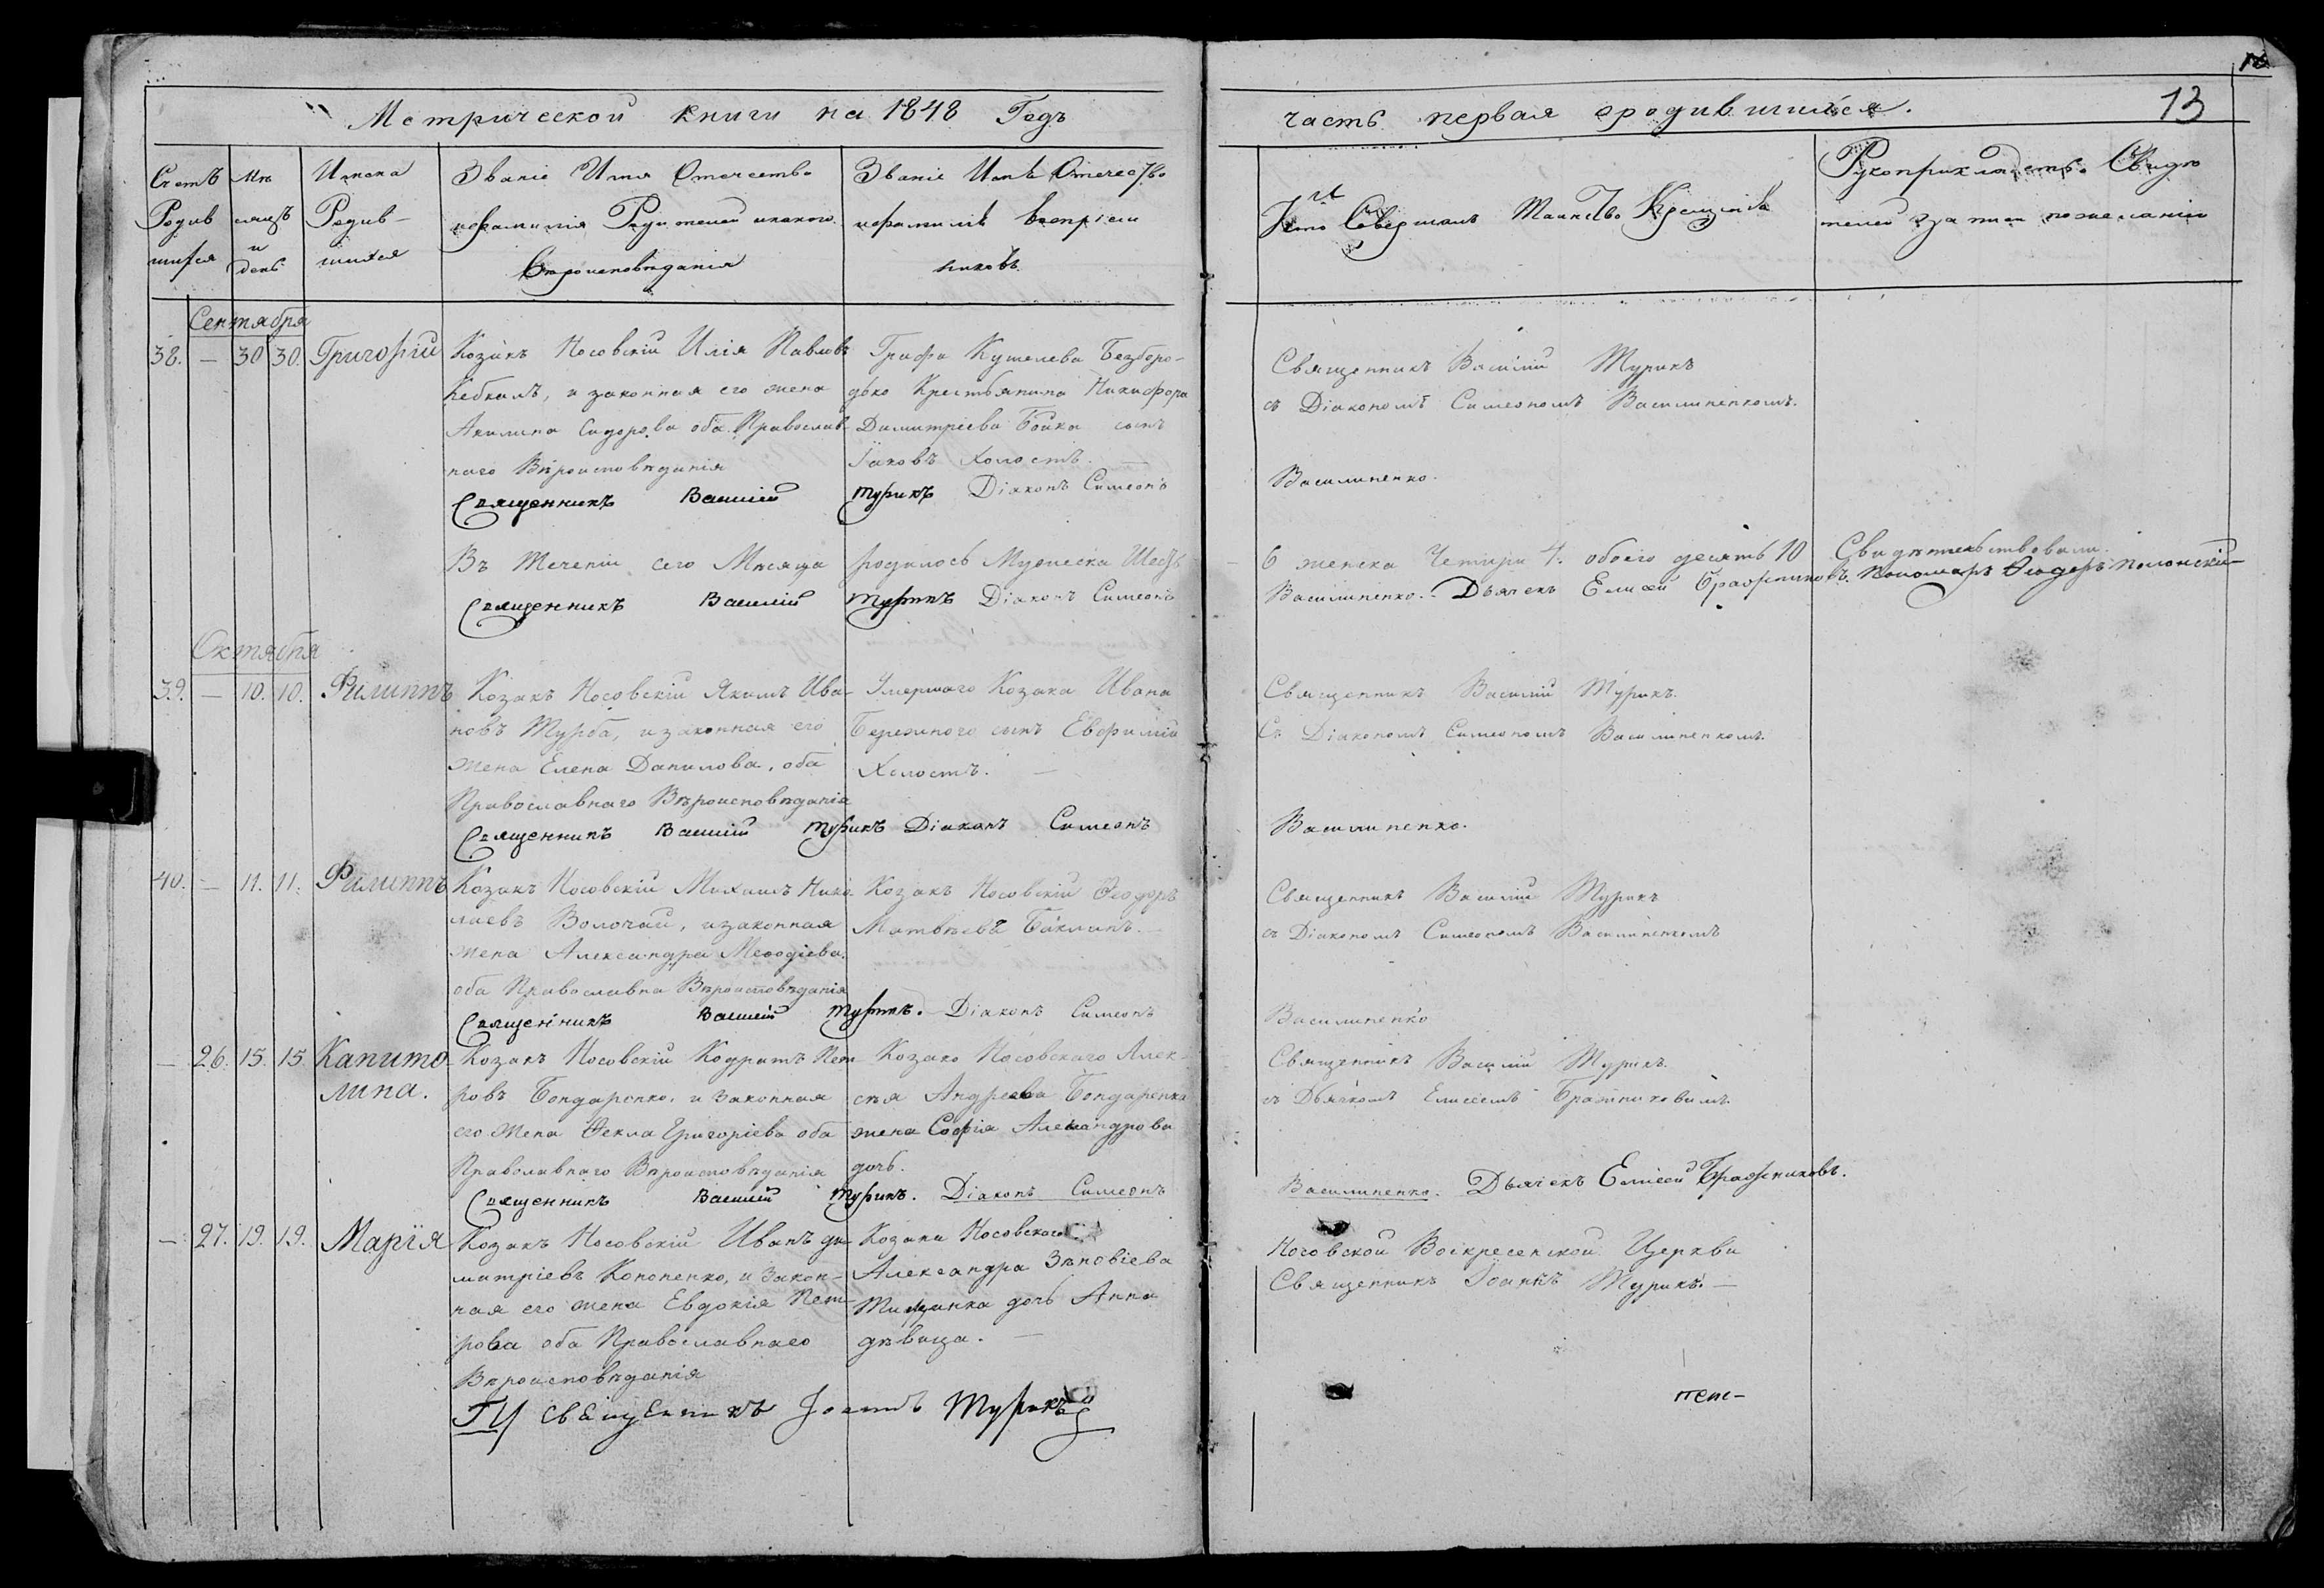 Метрической книги на 1848 Годъ
часть первая ородившихся. 13
Счетъ Родив шихся
Мѣ сяцъ и день
Имена Родив- шихся
Званіе Имя Отечество
ифамилія Родителей икакого
Вѣроисповѣданія
Званіе Имя Отечество
ифамилія Воспріем
никовъ
Кто Совершалъ Таинство Крещенія
Рукоприкладство Свидѣ
телей записи пожеланію
Сентября
38. — 30 30. Григорій
Козакъ Носовскій Илія Павловъ
Кебкалъ, и законная его жена
Акилина Сидорова оба Православ
наго Вѣроисповѣданія
Графа Кушелева Безборо-
дько Крестьянина Никифора
Димитріева Бойка сынъ
Іаковъ Холостъ. —
Священникъ Василій Турикъ
съ Діакономъ Симеономъ Василиненкомъ.
Священникъ Василій Турикъ Діаконъ Симеонъ Василиненко.
Въ теченіи сего Мѣсяца родилось Мужеска Шесть 6 женска Четыри 4. обоего десять 10 Свидѣтельствовали.
Священникъ Василій Турикъ Діаконъ Симеонъ Василиненко. Дьячекъ Елисей Бражниковъ. Пономарь Ѳеодоръ Полонскій
Октября
39. — 10. 10. Филиппъ
Козакъ Носовскій Якимъ Ива-
новъ Турба, изаконная его
жена Елена Данилова, оба
Православнаго Вѣроисповѣданія
Умершаго Козака Ивана
Бережного сынъ Евфимій
Холостъ. —
Священникъ Василій Турикъ.
Съ Діакономъ Симеономъ Василиненкомъ.
Священникъ Василій Турикъ Діаконъ Симеонъ Василиненко.
40. — 11. 11. Филиппъ
Козакъ Носовскій Михаилъ Нико-
лаевъ Волочай, изаконная
жена Александра Меѳодіева.
оба Православна Вѣроисповѣданія
Козакъ Носовскій Ѳеодоръ
Матвѣевъ Бакланъ. —
Священникъ Василій Турикъ
съ Діакономъ Симеономъ Василиненкомъ
Священникъ Василій Турикъ. Діаконъ Симеонъ Василиненко
— 26. 15. 15. Капито-
лина.
Козакъ Носовскій Кодратъ Пет
ровъ Бондаренко, и законная
его жена Ѳекла Григоріева оба
Православнаго Вѣроисповѣданія
Козака Носовскаго Алек-
сѣя Андреева Бондаренка
жена Софія Александрова
дочь.
Священникъ Василій Турикъ.
съ Дьячкомъ Елисеемъ Бражниковимъ.
Священникъ Василій Турикъ. Діаконъ Симеонъ Василиненко. Дьячекъ Елисей Бражниковъ.
— 27. 19. 19. Марія
Козакъ Носовскій Иванъ ди-
митріевъ Кононенко, и Закон-
ная его жена Евдокія Пет-
рова оба Православнаго
Вѣроисповѣданія
Козака Носовского
Александра Зѣновіева
дочь Анна
дѣвица. —
Носовской Воскресенской Церкви
Священникъ Іоаннъ Турикъ. —
Священникъ Іоаннъ Турикъ